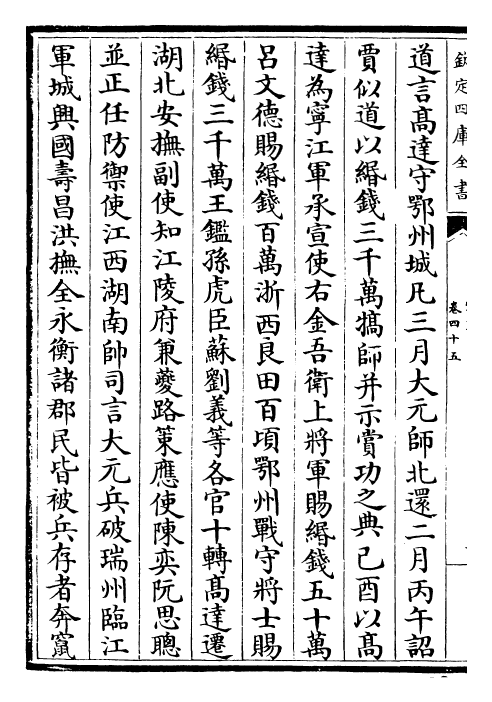 欽定四庫全書
卷四十五
道言髙達守鄂州城凡三月大元師北還二月丙午詔
賈似道以緡錢三千萬犒師并示賞功之典己酉以髙
達為寧江軍承宣使右金吾衛上將軍賜緡錢五十萬
吕文德賜緡錢百萬浙西良田百頃鄂州戰守將士賜
緡錢三千萬王鑑孫虎臣蘇劉義等各官十轉髙達遷
湖北安撫副使知江陵府兼夔路策應使陳奕阮思聰
並正任防禦使江西湖南帥司言大元兵破瑞州臨江
軍城興國壽昌洪撫全永衡諸郡民皆被兵存者奔竄